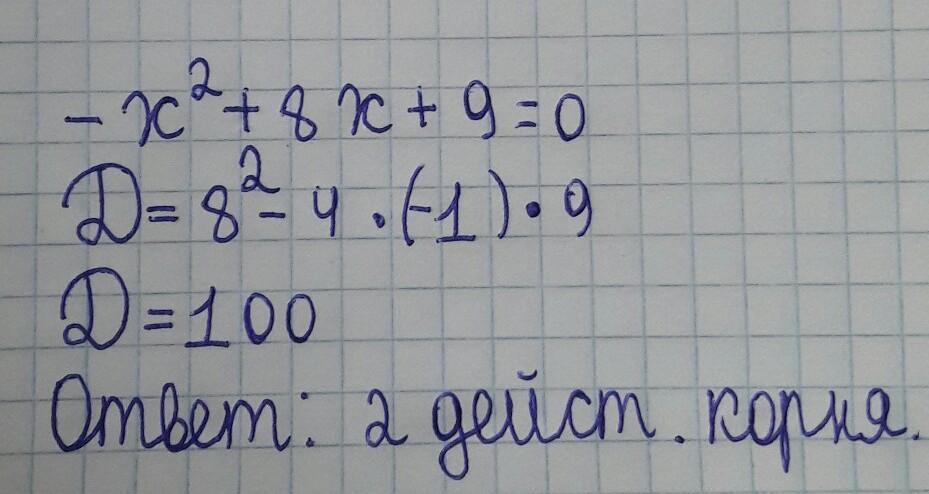 -x²+8x+9=0
Д=8²-4·(-1)·9
Д=100
Ответ: 2 дейст. корня.